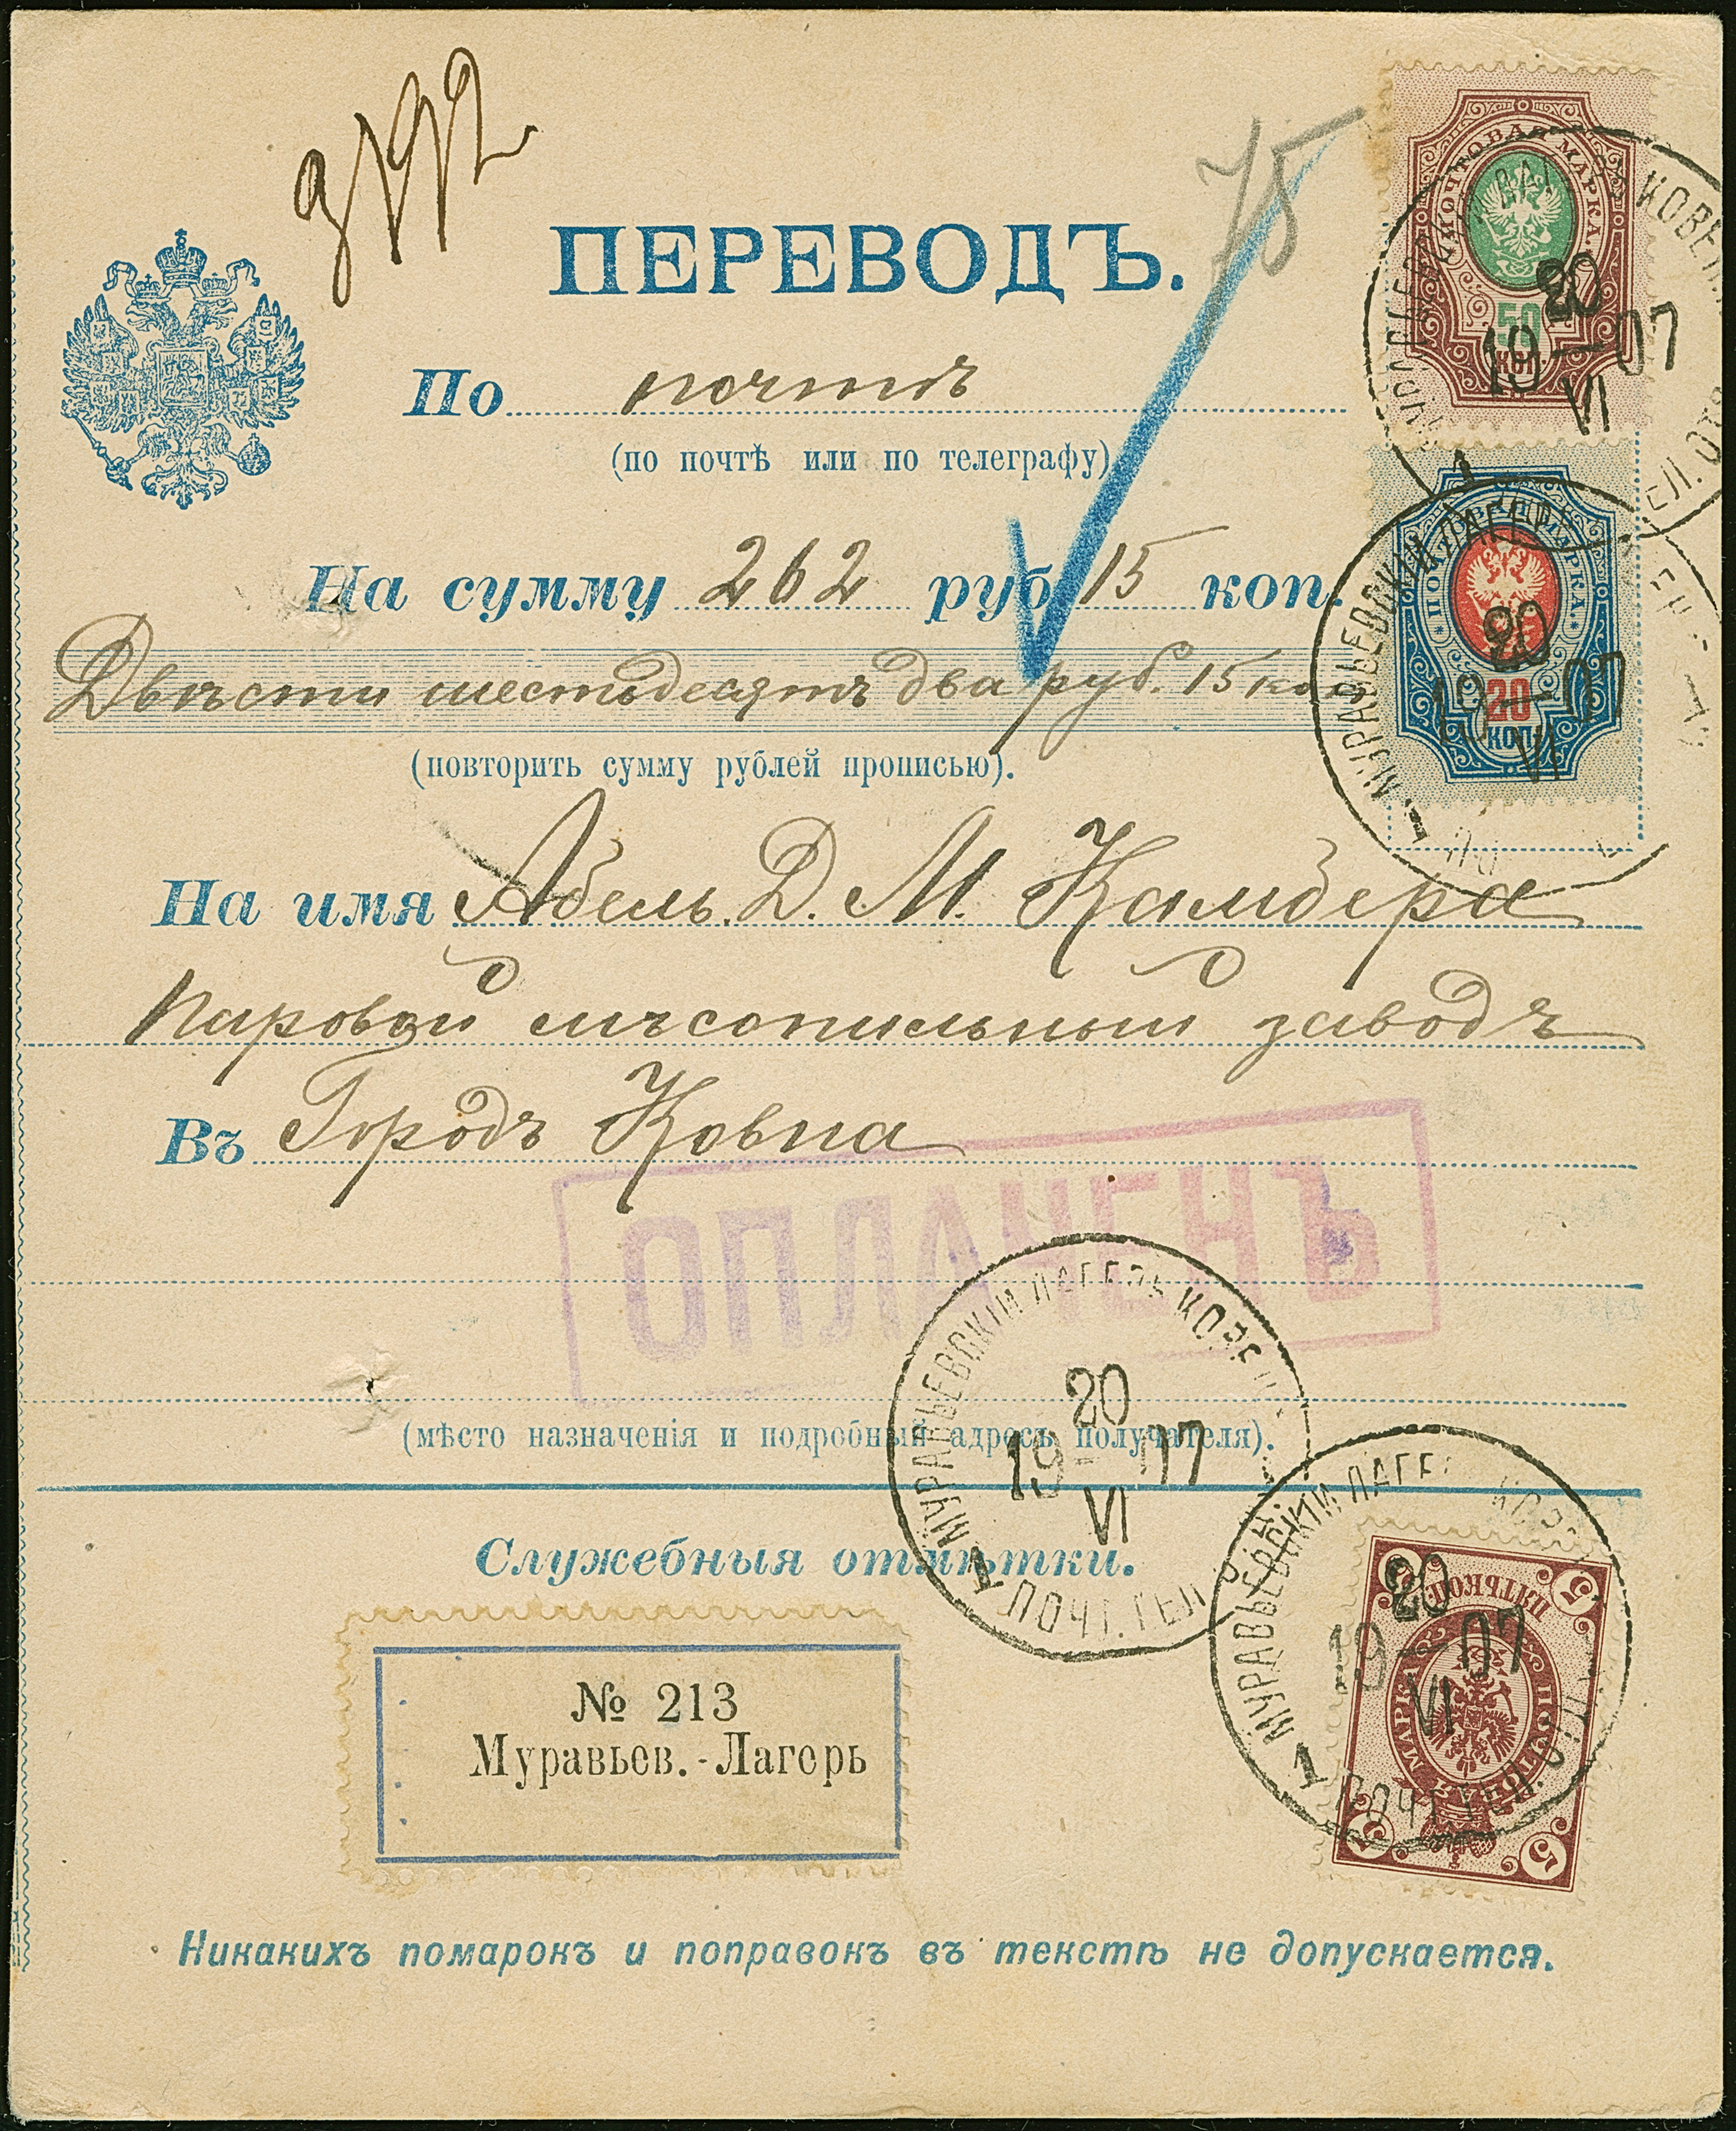 ПЕРЕВОДЪ.
75
По почтѣ
(по почтѣ или по телеграфу)
На сумму 262 руб. 15 коп.
Двѣсти шестьдесятъ два руб. 15 коп
(повторить сумму рублей прописью).
На имя Абель. Д. М. Камбера
Паровой лѣсопильный заводъ
Въ Городъ Ковна
ОПЛАЧЕНЪ
(мѣсто назначенія и подробный адресъ получателя).
Служебныя отмѣтки.
№ 213
Муравьев.-Лагерь
Никакихъ помарокъ и поправокъ въ текстѣ не допускается.
ПОЧТОВАЯ МАРКА.
50
КОП.
20
19—07
VI
ПОЧТОВАЯ МАРКА
20
КОП.
МУРАВЬЕВСКІЙ ЛАГЕРЬ
20
19—07
VI
1
МУРАВЬЕВСКІЙ ЛАГЕРЬ КОВЕН
20
19—07
VI
1 ПОЧТ. ТЕЛ
МУРАВЬЕВСКІЙ ЛАГЕ
20
19—07
VI
1 ПОЧТ. ТЕЛ. О
ПОЧТОВАЯ МАРКА
ПЯТЬ КОП.
5
5
5